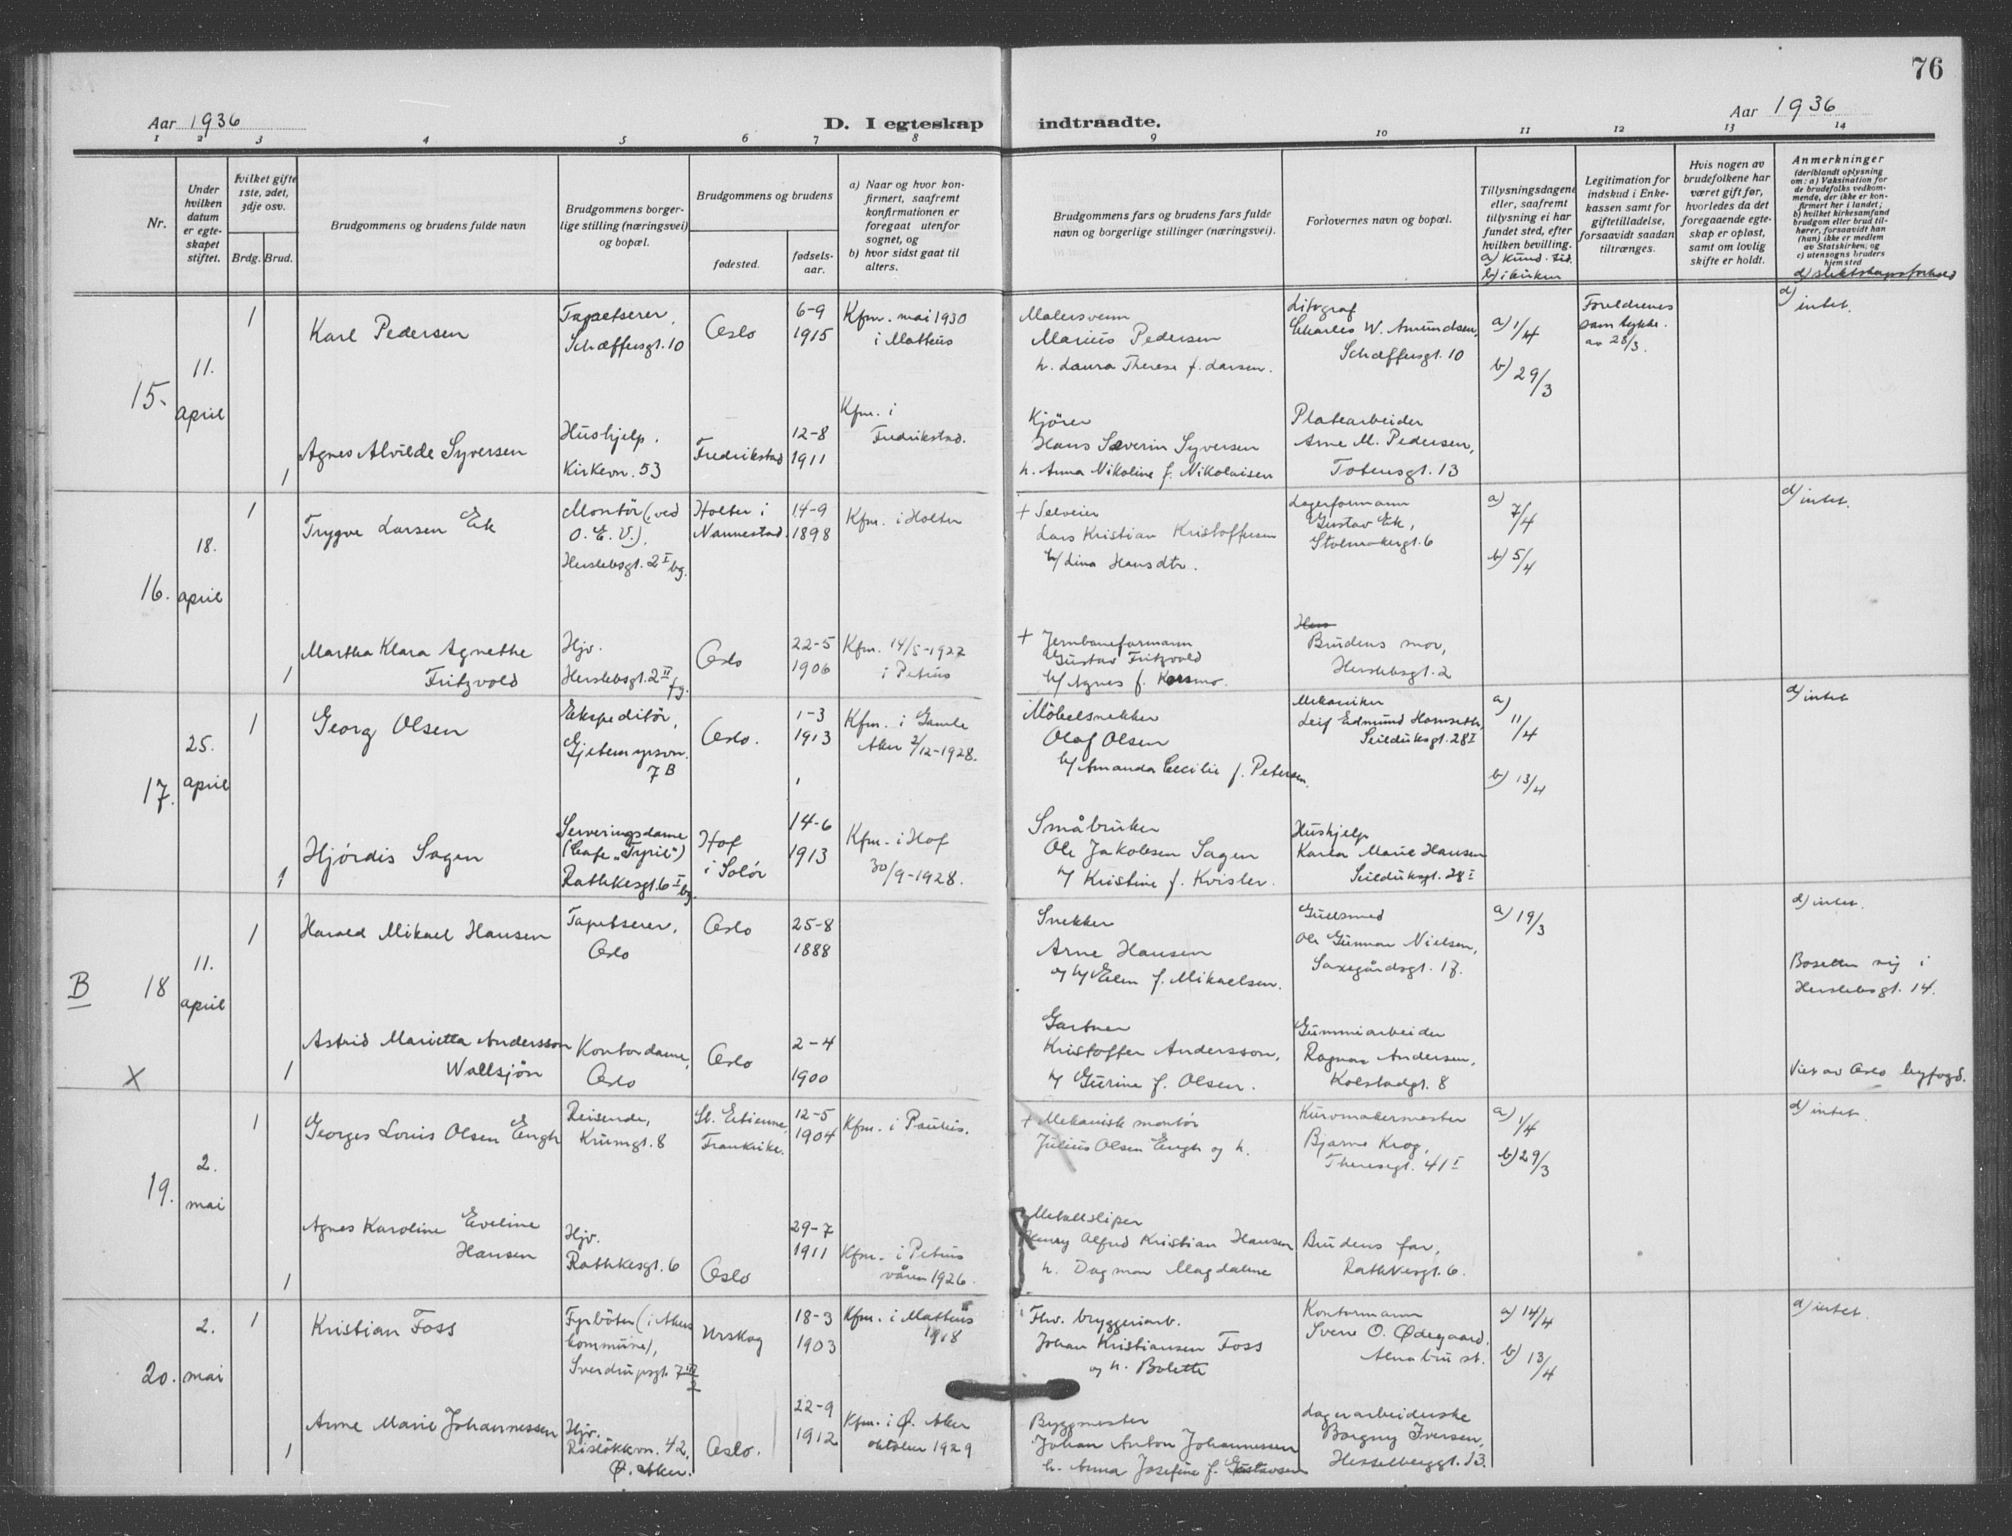 76
Aar 1936
D. I egteskap indtraadte.
Aar 1936
1 2 3 4 5 6 7 8 9 10 11 12 13 14
Nr.
Under hvilken datum er egteskapet stiftet.
hvilket gifte 1ste, 2det, 3dje osv.
Brdg. Brud.
Brudgommens og brudens fulde navn
Brudgommens borgerlige stilling (næringsvei) og bopæl.
Brudgommens og brudens
fødested.
fødselsaar.
a) Naar og hvor konfirmert, saafremt konfirmationen er foregaat utenfor sognet, og
b) hvor sidst gaat til alters.
Brudgommens fars og brudens fars fulde navn og borgerlige stillinger (næringsvei).
Forlovernes navn og bopæl.
Tillysningsdagene eller, saafremt tillysning ei har fundet sted, efter hvilken bevilling.
a) Kund. tid.
b) i kirken
Legitimation for indskud i Enkekassen samt for giftetilladelse, forsaavidt saadan tiltrænges.
Hvis nogen av brudefolkene har været gift før, hvorledes da det foregaaende egteskap er opløst, samt om lovlig skifte er holdt.
Anmerkninger
(deriblandt oplysning om: a) Vaksination for de brudefolks vedkommende, der ikke er konfirmert her i landet;
b) hvilket kirkesamfund brudgom eller brud tilhører, forsaavidt han (hun) ikke er medlem av Statskirken; og
c) utensogns bruders hjemsted
d) slektskapsforhold
15.
11. april
1
Karl Pedersen
Tapetserer,
Schæffersgt. 10
Oslo
6-9
1915
Kfm. mai 1930
i Matteus
Malersvenn
Marius Pedersen
h. Laura Therese f. Larsen.
Litograf
Charles W. Amundsen,
Schæffersgt. 10
a) 1/4
b) 29/3
Foreldrenes
samtykke.
av 28/3.
d) intet.
1
Agnes Alvilde Syversen
Hushjelp.
Kirkevn. 53
Fredrikstad
12-8
1911
Kfm. i
Fredrikstad.
Kjører
Hans Severin Syversen
h. Anna Nikoline f. Nikolaisen
Platearbeider
Arne M. Pedersen,
Totensgt. 13
16.
18. april
1
Trygve Larsen Ek
Montör (ved
O. E. V.).
Herslebsgt. 2 I bg.
Holter i
Nannestad.
14-9
1898
Kfm. i Holter
+ Selveier
Lars Kristian Kristoffersen
h/ Lina Hansdtr.
Lagerformann
Gustav Ek,
Stolmakergt. 6
a) 7/4
b) 5/4
d) intet.
1
Martha Klara Agnethe
Fritzvold
Hjv.
Herslebsgt. 2 II fg.
Oslo
22-5
1906
Kfm. 14/5-1922
i Petrus
+ Jernbaneformann
Gustav Fritzvold
h/ Agnes f. Korsmo.
Brudens mor,
Herslebsgt. 2
17.
25. april
1
Georg Olsen
Ekspeditör,
Gjetemyrsvn.
7 B
Oslo.
1-3
1913
Kfm. i Gamle
Aker 2/12-1928.
Möbelsnekker
Olaf Olsen
h/ Amanda Cecilie f. Petersen.
Mekaniker
Leif Edmund Hamseth,
Seilduksgt. 28 I
a) 11/4
b) 13/4
d) intet
1
Hjördis Sagen
Serveringsdame
(Cafe „Tyril")
Rathkesgt. 6 I bg.
Hof
i Solör
14-6
1913
Kfm. i Hof
30/9-1928.
Småbruker
Ole Jakobsen Sagen
h/ Kristine f. Kvisler.
Hushjelp
Karla Marie Hansen
Seilduksgt. 28 I
B
18
11. april
1
Harald Mikael Hansen
Tapetserer,
Oslo
Oslo
25-8
1888
Snekker
Arne Hansen
og h/ Elen f. Mikaelsen.
Gullsmed
Ole Gunnar Nielsen,
Saxegårdsgt. 17.
a) 19/3
d) intet.
Bosetter sig i
Herslebsgt. 14.
X
1
Astrid Marietta Andersson
Wallsjön
Kontordame,
Oslo
Oslo
2-4
1900
Gartner
Kristoffer Andersson,
h/ Gurine f. Olsen.
Gummiarbeider
Ragnar Andersen,
Kolstadgt. 8
Viet av Oslo byfogd.
19.
2. mai
1
Georges Louis Olsen Engh
Reisende,
Krumgt. 8
St. Etienne,
Frankrike.
12-5
1904
Kfm. i Paulus.
+ Mekanisk montör
Julius Olsen Engh og h.
Kurvmakermester
Bjarne Krog,
Theresgt. 41 I
a) 1/4
b) 29/3
d) intet
1
Agnes Karoline Eveline
Hansen
Hjv.
Rathkesgt. 6
Oslo
29-7
1911
Kfm. i Petrus
våren 1926.
Metallsliper
Henry Alfred Kristian Hansen
h. Dagmar Magdalene
Brudens far,
Rathkesgt. 6.
20.
2. mai
1
Kristian Foss
Fyrböter (i Akers
kommune),
Sverdrupsgt. 7 III
2
Urskog
18-3
1903
Kfm. i Matteus
1918
Fhv. bryggeriarb.
Johan Kristiansen Foss
og h. Bolette
Kontormann
Sverre O. Ødegaard,
Alnabru st.
a) 14/4
b) 13/4
d) intet
1
Anne Marie Johannessen
Hjv.
Risløkkvn. 42,
Ø. Aker.
Oslo.
22-9
1912
Kfm. i Ø. Aker
oktober 1929
Byggmester
Johan Anton Johannessen
h. Anna Josefine f. Gustavsen
Lagerarbeiderske
Borgny Iversen,
Hesselberggt. 13.